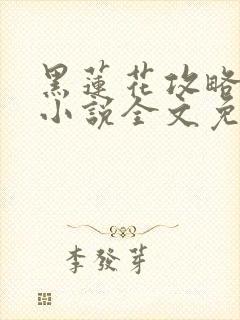 黑蓮花攻略
小說全文免
李發芽